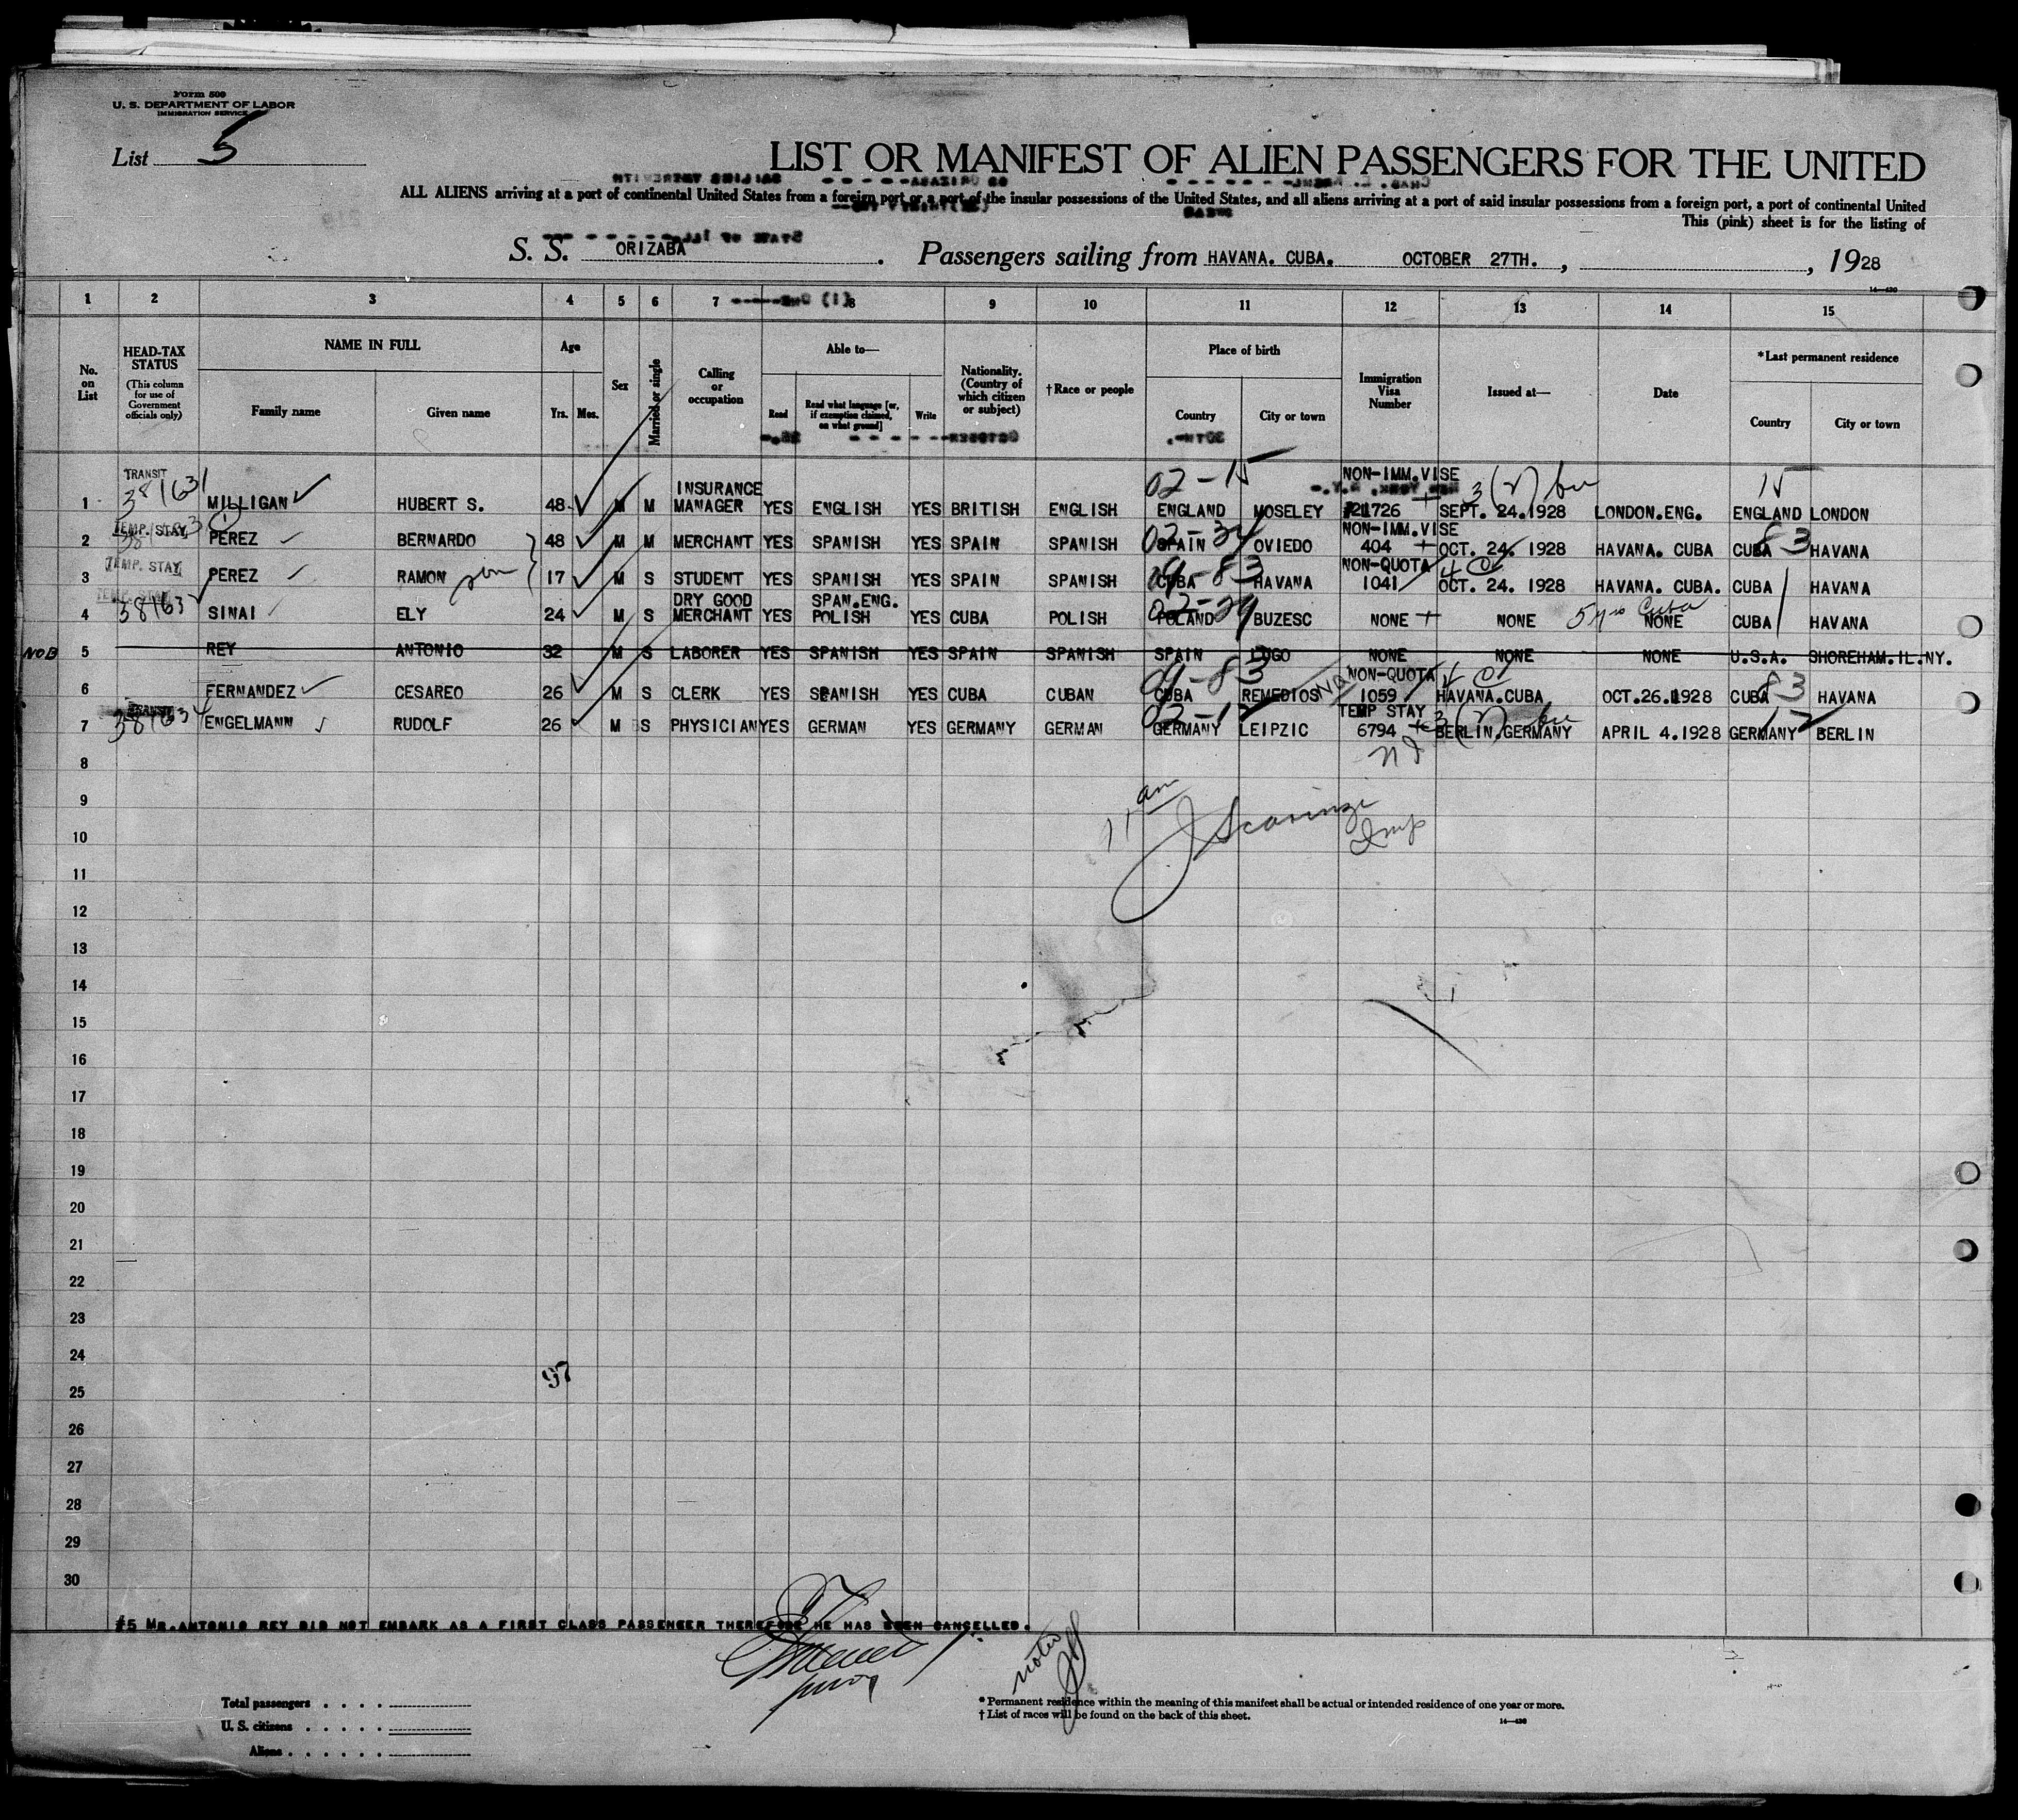 Form 500
U. S. DEPARTMENT OF LABOR
IMMIGRATION SERVICE
List 5
LIST OR MANIFEST OF ALIEN PASSENGERS FOR THE UNITED
ALL ALIENS arriving at a port of continental United States from a foreign port or a port of the insular possessions of the United States, and all aliens arriving at a port of said insular possessions from a foreign port, a port of continental United
This (pink) sheet is for the listing of
S. S. ORIZABA. Passengers sailing from HAVANA. CUBA. OCTOBER 27TH. , , 1928
1 2 3 4 5 6 7 8 9 10 11 12 13 14 15
No. on List
HEAD-TAX STATUS (This column for use of Government officials only)
NAME IN FULL
Family name Given name
Age
Yrs. Mos.
Sex
Married or single
Calling or occupation
Able to—
Read Read what language [or, if exemption claimed, on what ground] Write
Nationality. (Country of which citizen or subject)
† Race or people
Place of birth
Country City or town
Immigration Visa Number
Issued at—
Date
* Last permanent residence
Country City or town
TRANSIT INSURANCE NON-IMM.VISE 02-15 15
1 MILLIGAN HUBERT S. 48 M M MANAGER YES ENGLISH YES BRITISH ENGLISH ENGLAND MOSELEY 21726 SEPT. 24.1928 LONDON.ENG. ENGLAND LONDON
TEMP. STAY NON-IMM.VISE
2 PEREZ BERNARDO 48 M M MERCHANT YES SPANISH YES SPAIN SPANISH SPAIN OVIEDO 404 OCT. 24. 1928 HAVANA. CUBA CUBA 83 HAVANA
TEMP. STAY NON-QUOTA
3 PEREZ RAMON son 17 M S STUDENT YES SPANISH YES SPAIN SPANISH CUBA 83 HAVANA 1041 OCT. 24. 1928 HAVANA. CUBA. CUBA HAVANA
DRY GOOD SPAN.ENG.
4 SINAI ELY 24 M S MERCHANT YES POLISH YES CUBA POLISH POLAND BUZESC NONE NONE 5 yrs Cuba NONE CUBA HAVANA
NOB 5 REY ANTONIO 32 M S LABORER YES SPANISH YES SPAIN SPANISH SPAIN LUGO NONE NONE NONE U.S.A. SHOREHAM.IL.NY.
NON-QUOTA
6 FERNANDEZ CESAREO 26 M S CLERK YES SPANISH YES CUBA CUBAN CUBA REMEDIOS 1059 HAVANA.CUBA OCT.26.1928 CUBA 83 HAVANA
TRANSIT TEMP STAY
7 ENGELMANN RUDOLF 26 M S PHYSICIAN YES GERMAN YES GERMANY GERMAN GERMANY LEIPZIC 6794 BERLIN.GERMANY APRIL 4.1928 GERMANY BERLIN
8
9
10
11
12
13
14
15
16
17
18
19
20
21
22
23
24
25
26
27
28
29
30
11 am
Insp
97
#5 MR.ANTONIO REY DID NOT EMBARK AS A FIRST CLASS PASSENGER THEREFORE HE HAS BEEN CANCELLED.
noted
Total passengers . . . .
U. S. citizens . . . . .
Aliens . . . . . .
* Permanent residence within the meaning of this manifest shall be actual or intended residence of one year or more.
† List of races will be found on the back of this sheet.
14—430